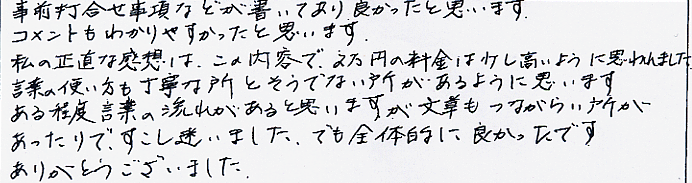 事前打合せ事項などが書いてあり良かったと思います。
コメントもわかりやすかったと思います。
私の正直な感想は、この内容で、2万円の料金は少し高いように思われました
言葉の使い方も丁寧な所とそうでない所があるように思います
ある程度言葉の流れがあると思いますが文章もつながらい所が
あったりで、すこし迷いました、でも全体的に良かったです
ありがとうございました。